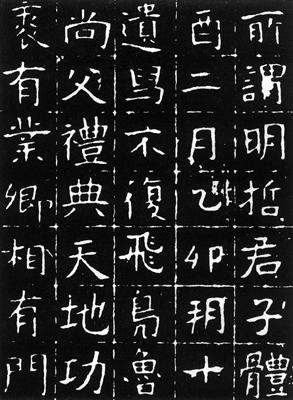 所謂明哲君子體
酉二月乙卯朔十
遺舄不復飛鳧魯
尚父禮典天地功
裘有業卿相有門